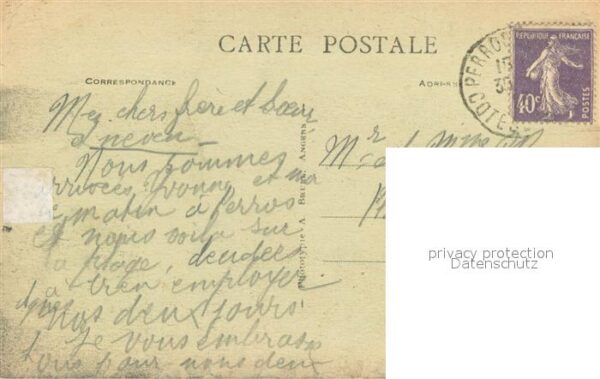 CARTE POSTALE
CORRESPONDANCE
PERROS
15
35
COTES
REPUBLIQUE FRANÇAISE
40c
POSTES
Mes chers frère et soeur
& neveu
Nous sommes
arrivées, Yvonne et moi
ce matin à Perros
et nous voilà sur
la plage, decidées
à bien employer
nos deux jours
Je vous embrasse
tous pour nous deux
Phototypie A. Bruel, Angers
Mr et Mme
privacy protection
Datenschutz